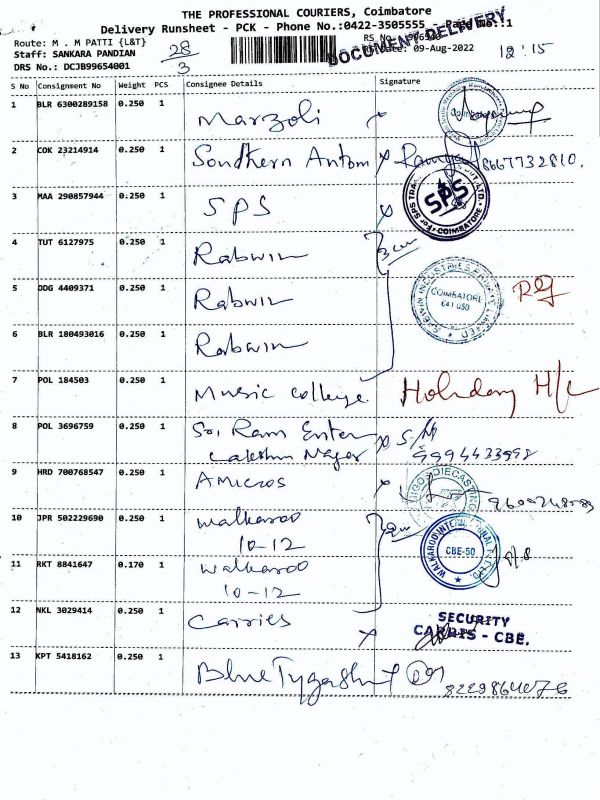 THE PROFESSIONAL COURIERS, Coimbatore
Delivery Runsheet - PCK - Phone No.:0422-3505555 - Page No.:1
DOCUMENT DELIVERY
Route: M . M PATTI {L&T}
Staff: SANKARA PANDIAN
DRS No.: DCJB99654001
28
3
RS No.
RS Date: 09-Aug-2022
12:15
S No Consignment No Weight PCS Consignee Details Signature
1 BLR 6300289158 0.250 1 Marzoli
2 COK 23214914 0.250 1 Southern Antom 8667732810.
3 MAA 290857944 0.250 1 SPS
SPS
COIMBATORE
4 TUT 6127975 0.250 1 Rabwin
5 DDG 4409371 0.250 1 Rabwin
RABWIN INDUSTRIES PRIVATE LIMITED
COIMBATORE
641 050
6 BLR 180493016 0.250 1 Rabwin
7 POL 184503 0.250 1 Music college Holiday H/L
8 POL 3696759 0.250 1 Sri Ram Enter
Lakshmi Nagar
9994433998
9 HRD 700768547 0.250 1 Amicros
10 JPR 502229690 0.250 1 Walkaroo
10-12
CBE-50
11 RKT 8841647 0.170 1 Walkaroo
10-12
12 NKL 3029414 0.250 1 Carries
SECURITY
CARRIS - CBE.
13 KPT 5418162 0.250 1 Blue